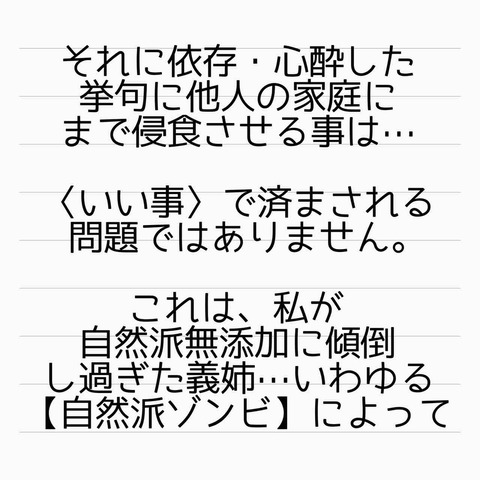 それに依存・心酔した
挙句に他人の家庭に
まで侵食させる事は…
〈いい事〉で済まされる
問題ではありません。
これは、私が
自然派無添加に傾倒
し過ぎた義姉…いわゆる
【自然派ゾンビ】によって